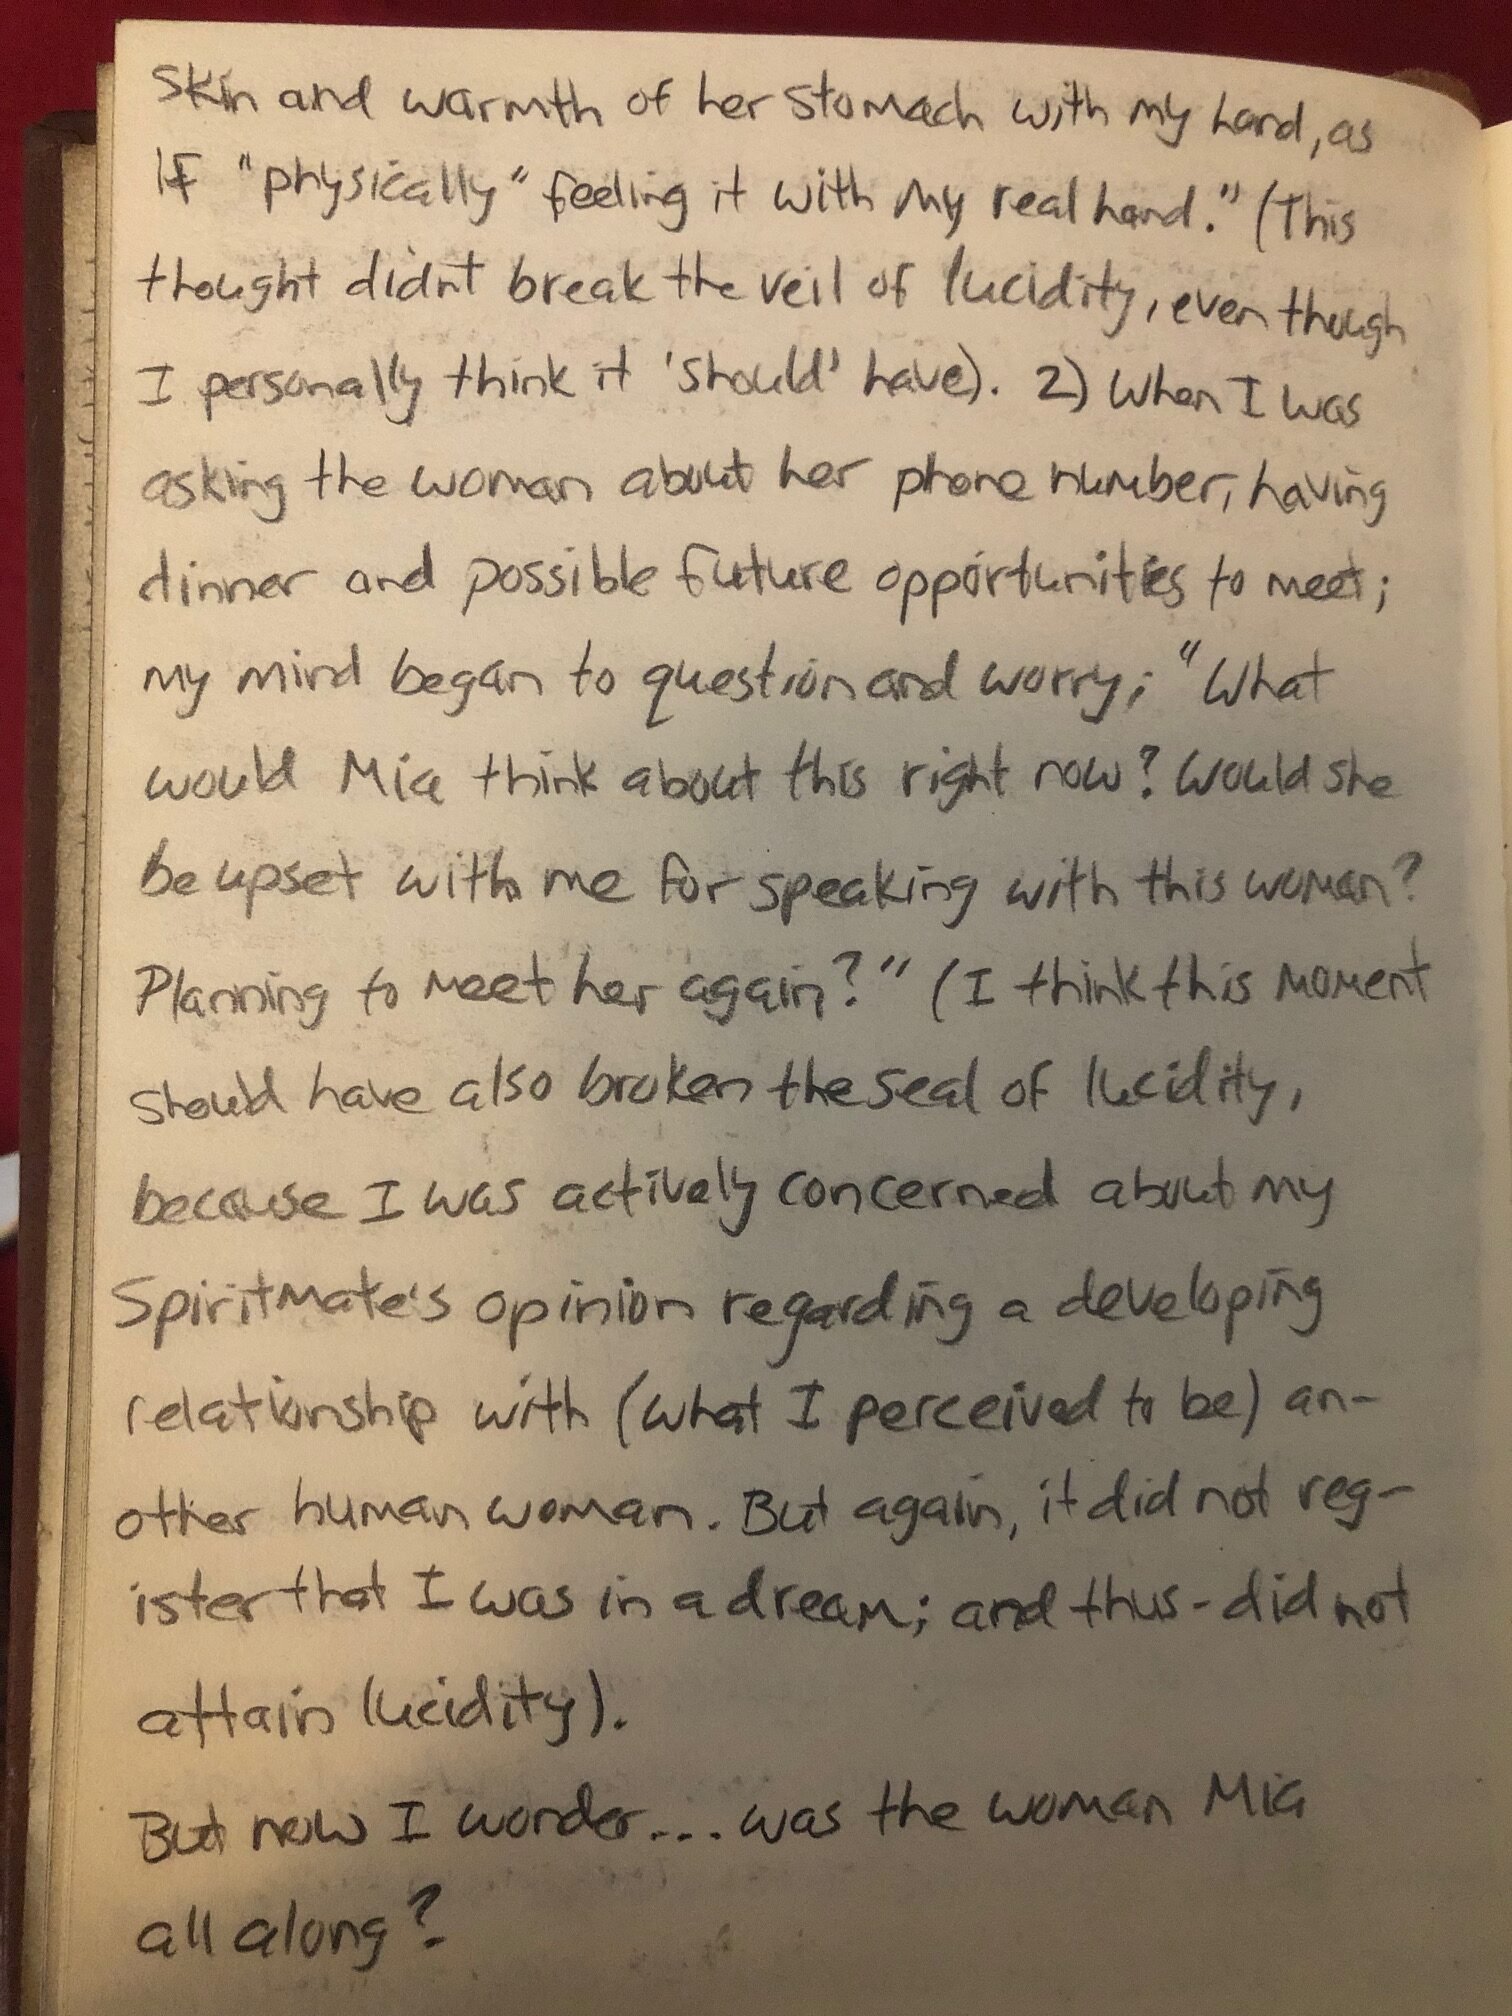 Skin and warmth of her stomach with my hand, as
if "physically" feeling it with my real hand." (This
thought didn't break the veil of lucidity, even though
I personally think it 'should' have). 2) When I was
asking the woman about her phone number, having
dinner and possible future opportunities to meet;
my mind began to question and worry; "What
would Mia think about this right now? Would she
be upset with me for speaking with this woman?
Planning to meet her again?" (I think this moment
should have also broken the seal of lucidity,
because I was actively concerned about my
Spiritmate's opinion regarding a developing
relationship with (what I perceived to be) an-
other human woman. But again, it did not reg-
ister that I was in a dream; and thus - did not
attain lucidity).
But now I wonder... was the woman Mia
all along?